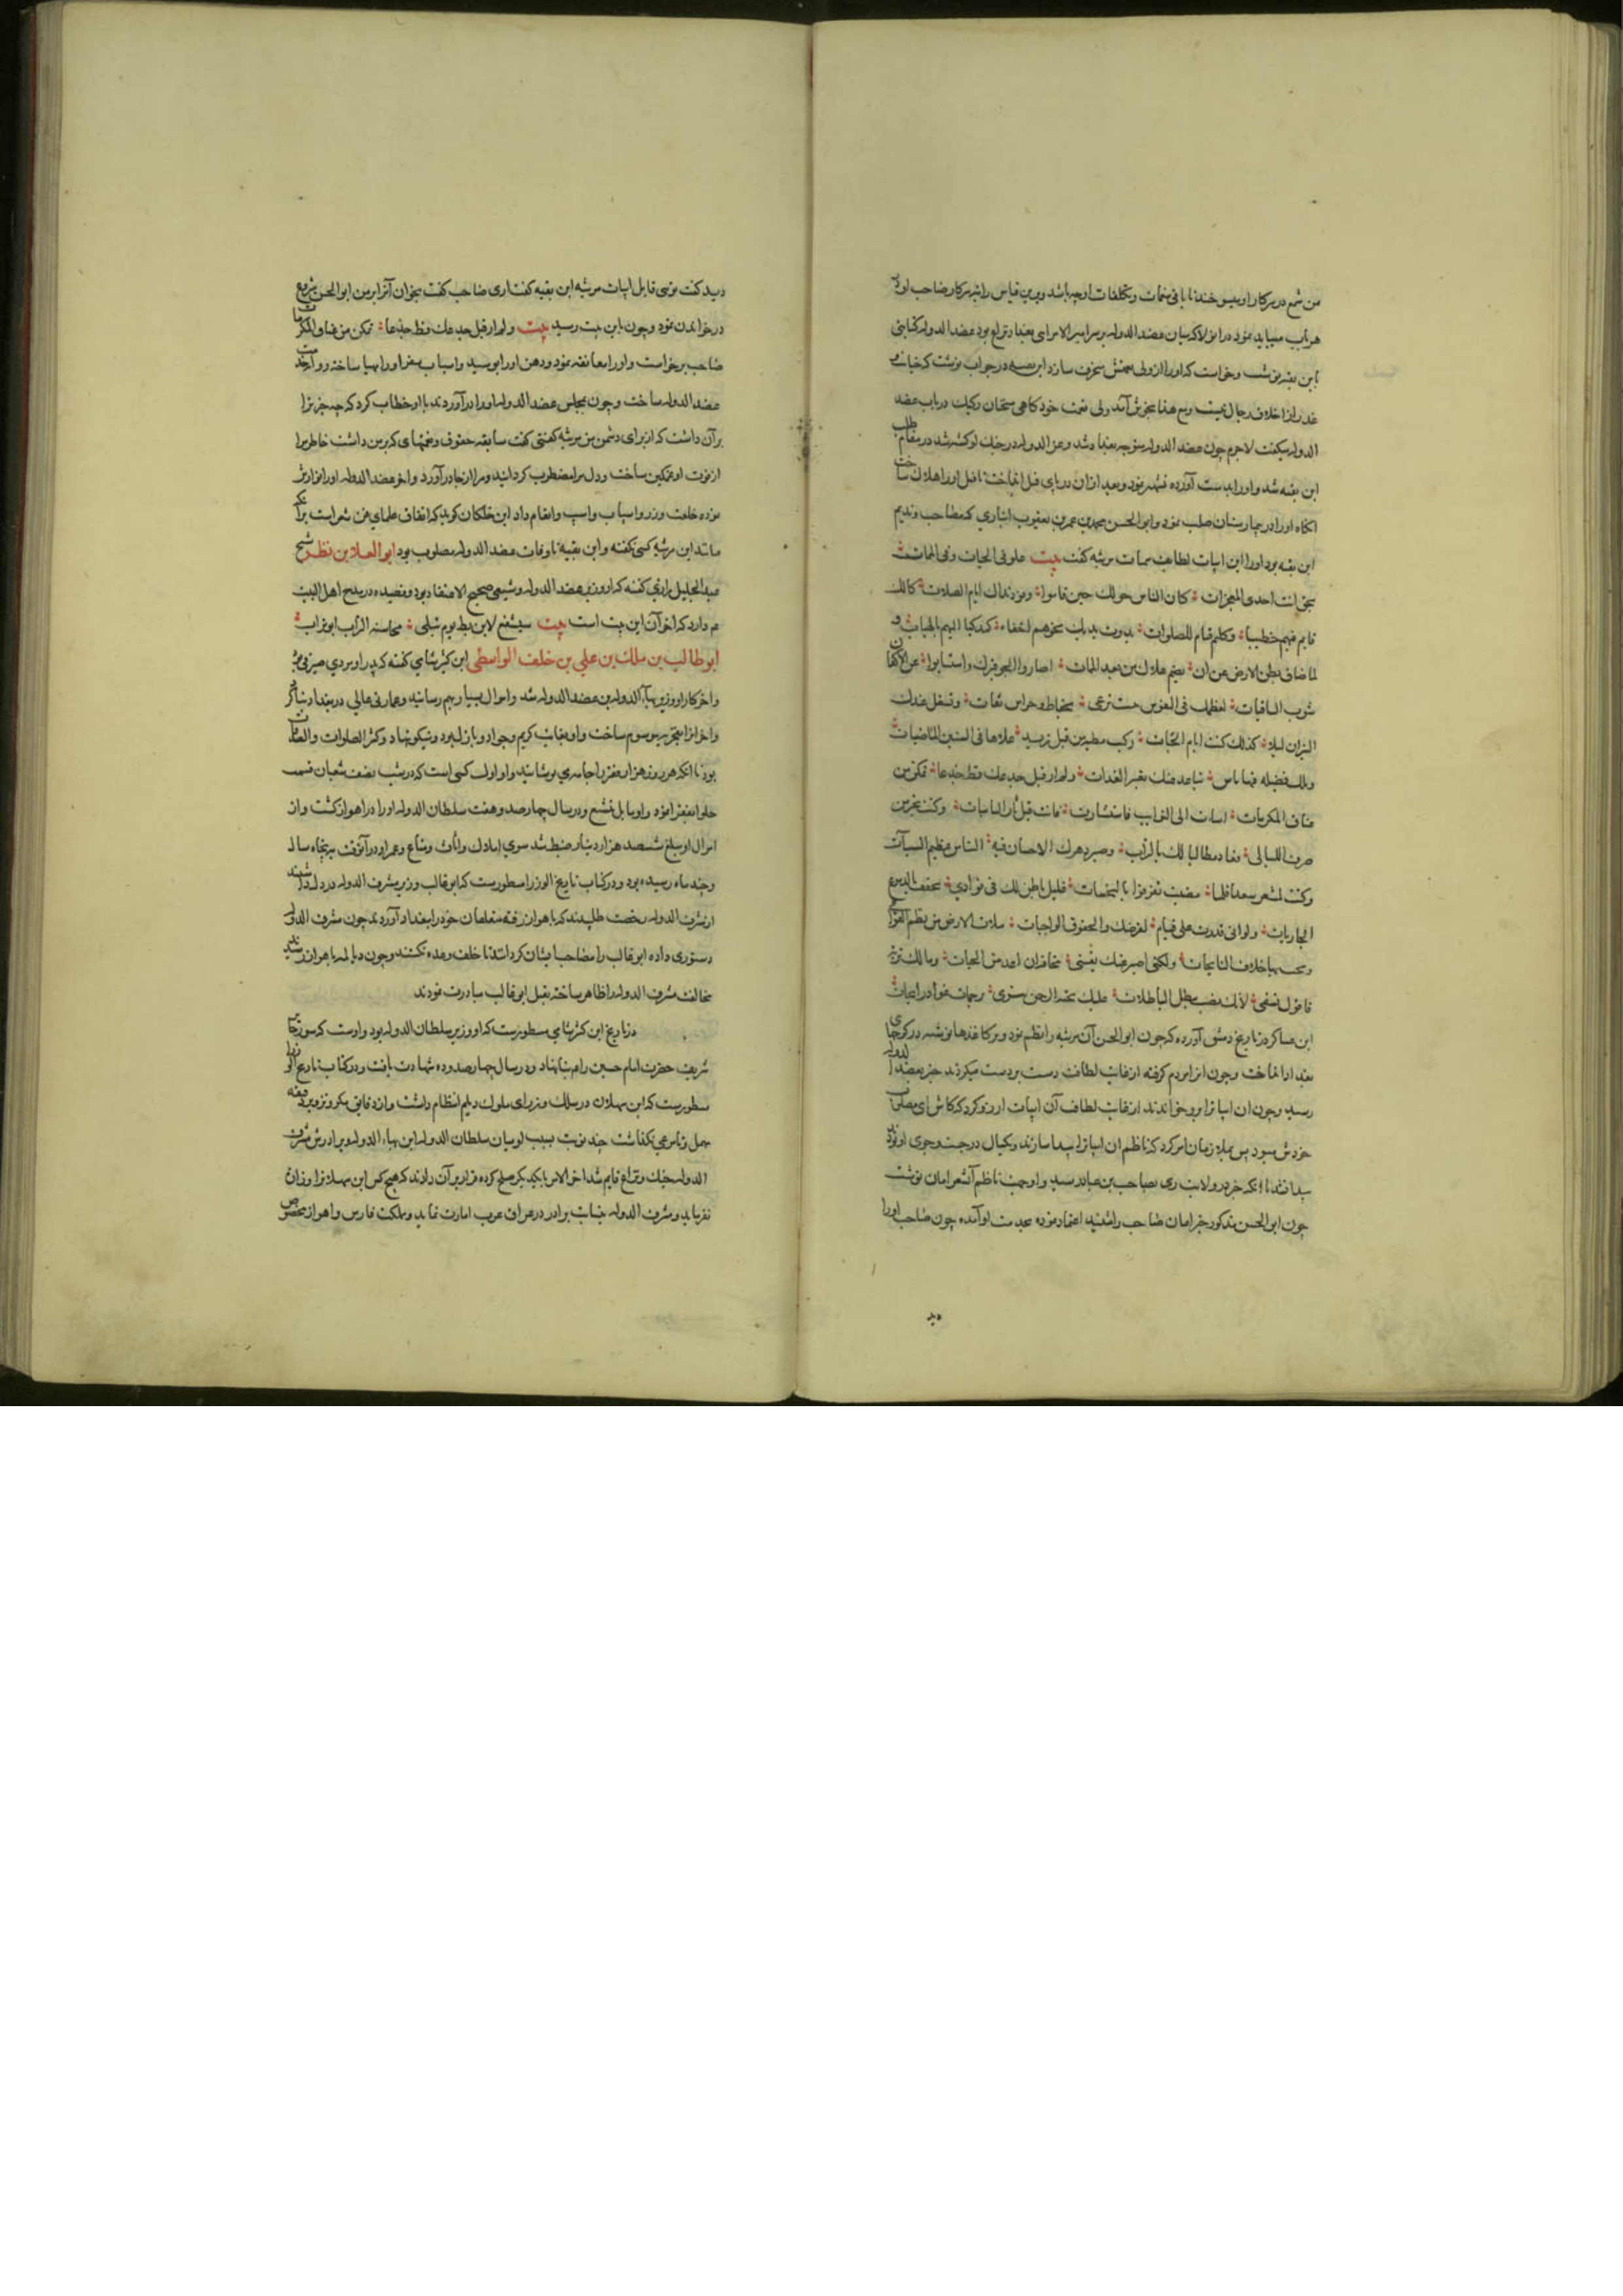 من شمع در سرکار او بسوختند تا باقی نعمات و تکلفات او چه باشد و برین قیاس راتبه سرکار صاحب او را
هر باب میباید نمود در اثر آنکه میان عضد الدوله و امیر الامرای بغداد نزاع بود عضد الدوله کتابتی
بابن بقیه نوشت و خواست که او را از ولی نعمتش منحرف سازد ابن بقیه در جواب نوشت که خیانت و
غدر از اخلاق رجال نیست و مع هذا بخویش آمد ولی نعمت خود کاهی سخنان رکیک در باب عضد
الدوله میکفت لاجرم چون عضد الدوله متوجه بغداد شد و عز الدوله در جنک او کشته شد در مقام طلب
ابن بقیه شد و او را بدست آورده تشهیر نمود و بعد از آن در پای فیل انداخت تا فیل او را هلاک ساخت
آنکاه او را در بیمارستان صلب نمود و ابو الحسن محمد بن عمر بن یعقوب انباری که مصاحب و ندیم
ابن بقیه بود او را این ابیات لطایف سمات مرثیه کفت بیت علو فی الحیات و فی الممات
بحق انت احدی المعجزات کان الناس حولک حین قاموا وفود نداک ایام الصلات کانک
قایم فیهم خطیبا وکلهم قیام للصلوات مددت یدیک نحوهم احتفاء کمدکها الیهم بالهبات و
لما ضاق بطن الارض عن ان یضم علاک من بعد الممات اصاروا الجو قبرک واستنابوا عن الاکفان
ثوب السافیات لعظمک فی النفوس تبیت ترعی بحفاظ وحراس ثقات وتشعل عندک
النیران لیلا کذلک کنت ایام الحیات رکبت مطیة من قبل زید علاها فی السنین الماضیات
وتلک فضیلة فیها تاس تباعد عنک تعییر العدات ولم ار قبل جذعک قط جذعا تمکن من
عناق المکرمات اسات الی النوایب فاستثارت فانت قتیل ثار النایبات وکنت تجیر من
صرف اللیالی فعاد مطالبا لک بالترات وصیر دهرک الاحسان فیه الینا من عظیم السیآت
وکنت لمعشر سعدا فلما مضیت تفرقوا بالمنحسات غلیل باطن لک فی فوادی یخفف بالدموع
الجاریات ولو انی قدرت علی قیام لفرضک والحقوق الواجبات ملات الارض من نظم القوافی
ونحت بها خلاف النایحات ولکنی اصبر عنک نفسی مخافة ان اعد من الجنات ومالک تربة
فاقول تسقی لانک نصب هطل الهاطلات علیک تحیة الرحمن تتری برحمات غواد رایحات
ابن عساکر در تاریخ دمشق آورده که چون ابو الحسن آن مرثیه را نظم نمود و بر کاغذها نوشته در کوچهای
بغداد انداخت و چون آنرا مردم کرفته از غایت لطافت دست بردست میکردند خبر بعضد الدوله
رسید و چون آن ابیاترا برو خواندند از غایت لطافت آن ابیات آرزو کرد که کاش او مصلوب
خودش میبود پس ملازمان امر کرد که ناظم آن ابیاترا پیدا سازند و یکسال در جست و جوی او بودند
پیدا نشد تا آنکه خبر در ولایت ری بصاحب بن عباد رسید و او بجهت ناظم آن شعر امان نوشت
چون ابو الحسن مذکور خبر امان صاحب را شنید اعتماد نموده بخدمت او آمده چون صاحب او را
دید
دید کفت توئی قایل ابیات مرثیه ابن بقیه کفت آری صاحب کفت بخوان آنرا برمن ابو الحسن شروع
در خواندن نمود و چون باین بیت رسید بیت ولم ار قبل جذعک قط جذعا تمکن من عناق المکرمات
صاحب برخواست و او را معانقه نمود و دهن او را بوسید و اسباب سفر او را مهیا ساخته روانه خدمت
عضد الدوله ساخت و چون بمجلس عضد الدوله او را درآوردند با او خطاب کرد که چه چیز ترا
برآن داشت که از برای دشمن من مرثیه کفتی کفت سابقه حقوق و نعمتهای که برمن داشت خاطر مرا
از فوت او غمکین ساخت و دل مرا مضطرب کردانید و مرا از جا درآورد و آخر عضد الدوله او را نوازش
نموده خلعت و زر و اسباب و اسپ و انعام داد ابن خلکان کوید که اتفاق علمای فن شعر است برآنکه
مانند این مرثیه کسی نکفته و ابن بقیه تا وفات عضد الدوله مصلوب بود ابو العلا بن بطر شیخ
عبد الجلیل رازی کفته که او وزیر عضد الدوله و شیعی صحیح الاعتقاد بود و قصیده در مدح اهل البیت
ع م دارد که آخر آن این بیت است بیت سیشفع لابن بطر یوم تبلی محاسنه التراب ابو تراب
ابو طالب بن ملک بن علی بن خلف الواسطی ابن کثیر شامی کفته که پدر او مردی صیرفی بود
و آخر کار او وزیر بهاء الدوله بن عضد الدوله شد و اموال بسیار بهم رسانید و عمارتی عالی در بغداد بنا کرد
و آنرا فخریه موسوم ساخت و او بغایت کریم و جواد و باذل بود و نیکو نهاد و کثیر الصلوات و الصدقات
بود تا آنکه هر روز هزار فقیر را جامه می پوشانید و او اول کسی است که در شب نصف شعبان قسمت
حلوا بفقرا نمود و او مایل بتشیع و در سال چهارصد و هفت سلطان الدوله او را در اهواز کشت و از
اموال او مبلغ ششصد هزار دینار ضبط شد سوی املاک و اثاث و متاع و عمر او در آنوقت پنجاه سال
و چند ماه رسیده بود و در کتاب تاریخ الوزرا مسطورست که ابو غالب وزیر مشرف الدوله در دل داشتند
از مشرف الدوله رخصت طلبیدند که باهواز رفته متعلقان خود را ببغداد آوردند چون مشرف الدوله
دستوری داده ابو غالب را مصاحب ایشان کردانید تا خلف وعده نکنند و چون دیالمه باهواز رسیدند
مخالفت مشرف الدوله را ظاهر ساخته بقتل ابو غالب مبادرت نمودند
در تاریخ ابن کثیر شامی مسطورست که او وزیر سلطان الدوله بود و اوست که سور حایر
شریف حضرت امام حسین را م بنا نهاد و در سال چهارصد و ده شهادت یافت و در کتاب تاریخ الوزرا
مسطورست که ابن سهلان در سلک وزرای ملوک دیلم انتظام داشت و از دقایق مکر و تزویر دقیقه
مهمل و نامرعی نکذاشت چند نوبت بسبب او میان سلطان الدوله ابن بهاء الدوله و برادرش مشرف
الدوله جنک و نزاع قایم شد آخر الامر با یکدیکر صلح کرده قرار برآن دادند که هیچ کس ابن سهلانرا وزارت
نفرماید و مشرف الدوله بنیابت برادر در عراق عرب امارت نماید و مملکت فارس و اهواز مخصوص